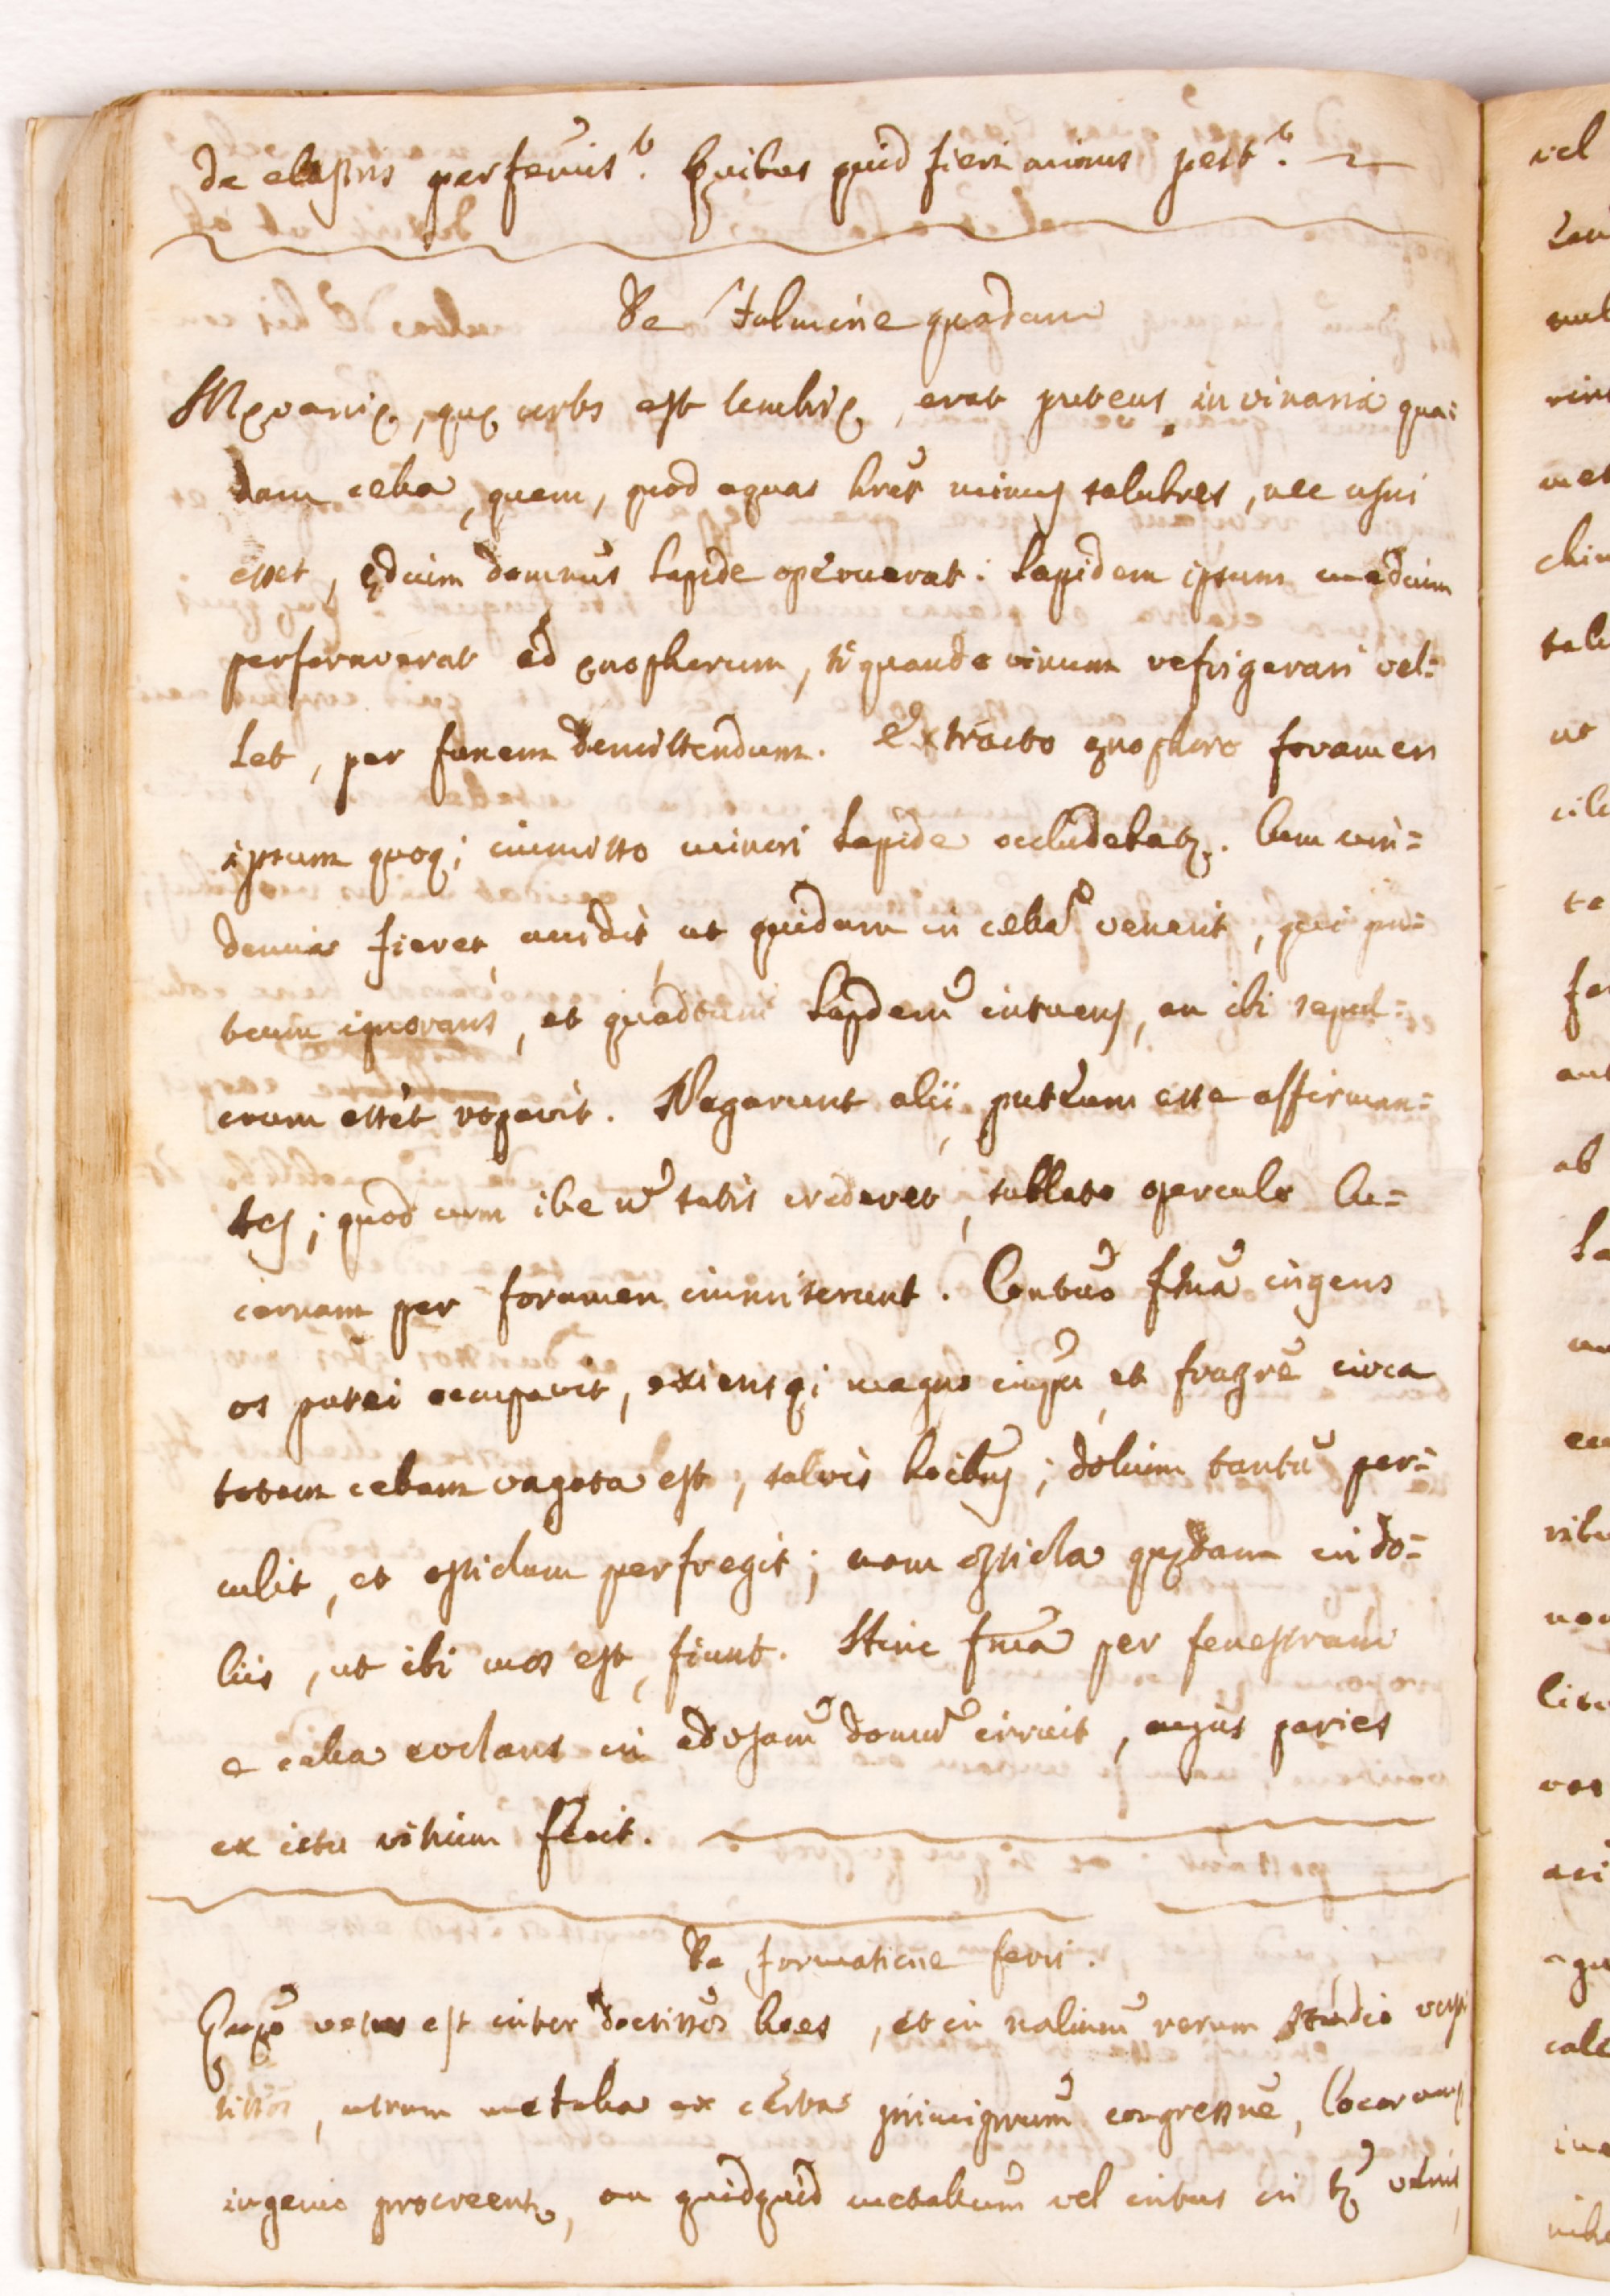 de elapsis perferuis.t Quibus quid fieri minus pest.t
De Fulmine quodam
Mevanię, quę urbs est Umbrię, erat puteus in vinaria qua=
dam cella, quem, quod aquas hret minus salubres, nec usui
esset, ędium dominus lapide operuerat. Lapidem ipsum medium
perforaverat ad ęnophorum, si quando vinum refrigerari vel=
let, per funem demittendum. Extracto ęnophoro foramen
ipsum quoq; immisso minori lapide occludebatr. Cum vin=
demia fieret accidit, ut quidam in cellā venerit, qui pu=
teum ignorans, et quadrum lapidem intuens, an ibi sepul=
crum esset rogavit. Negarunt alii, puteum esse affirman=
tes; quod cum ille nō satis crederet, sublato operculo lu=
cernam per foramen immiserunt. Contuō flma ingens
os putei occupavit, exiensq; magno impu, et fragre circa
totam cellam vagata est, salvis hoibus; dolium tantū per=
culit, et ostiolum perfregit; nam ostiola quędam in do=
liis, ut ibi mos est, fiunt. Hinc flma per fenestram
e cella evolans in advsam domū irruit, cujus paries
ex ictu vitium fecit.
De formatione ferri.
vetus est inter doctissos hoes, et in nalium rerum studio
sissos, utrum metalla ex certas principiorum congressne, locorum
ingenio procreentr, an quidquid metallum vel intus in